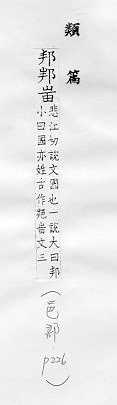 類篇
邦邦
悲江切說文國也一說大曰邦
小曰國亦姓古作文三
(邑部 p226)